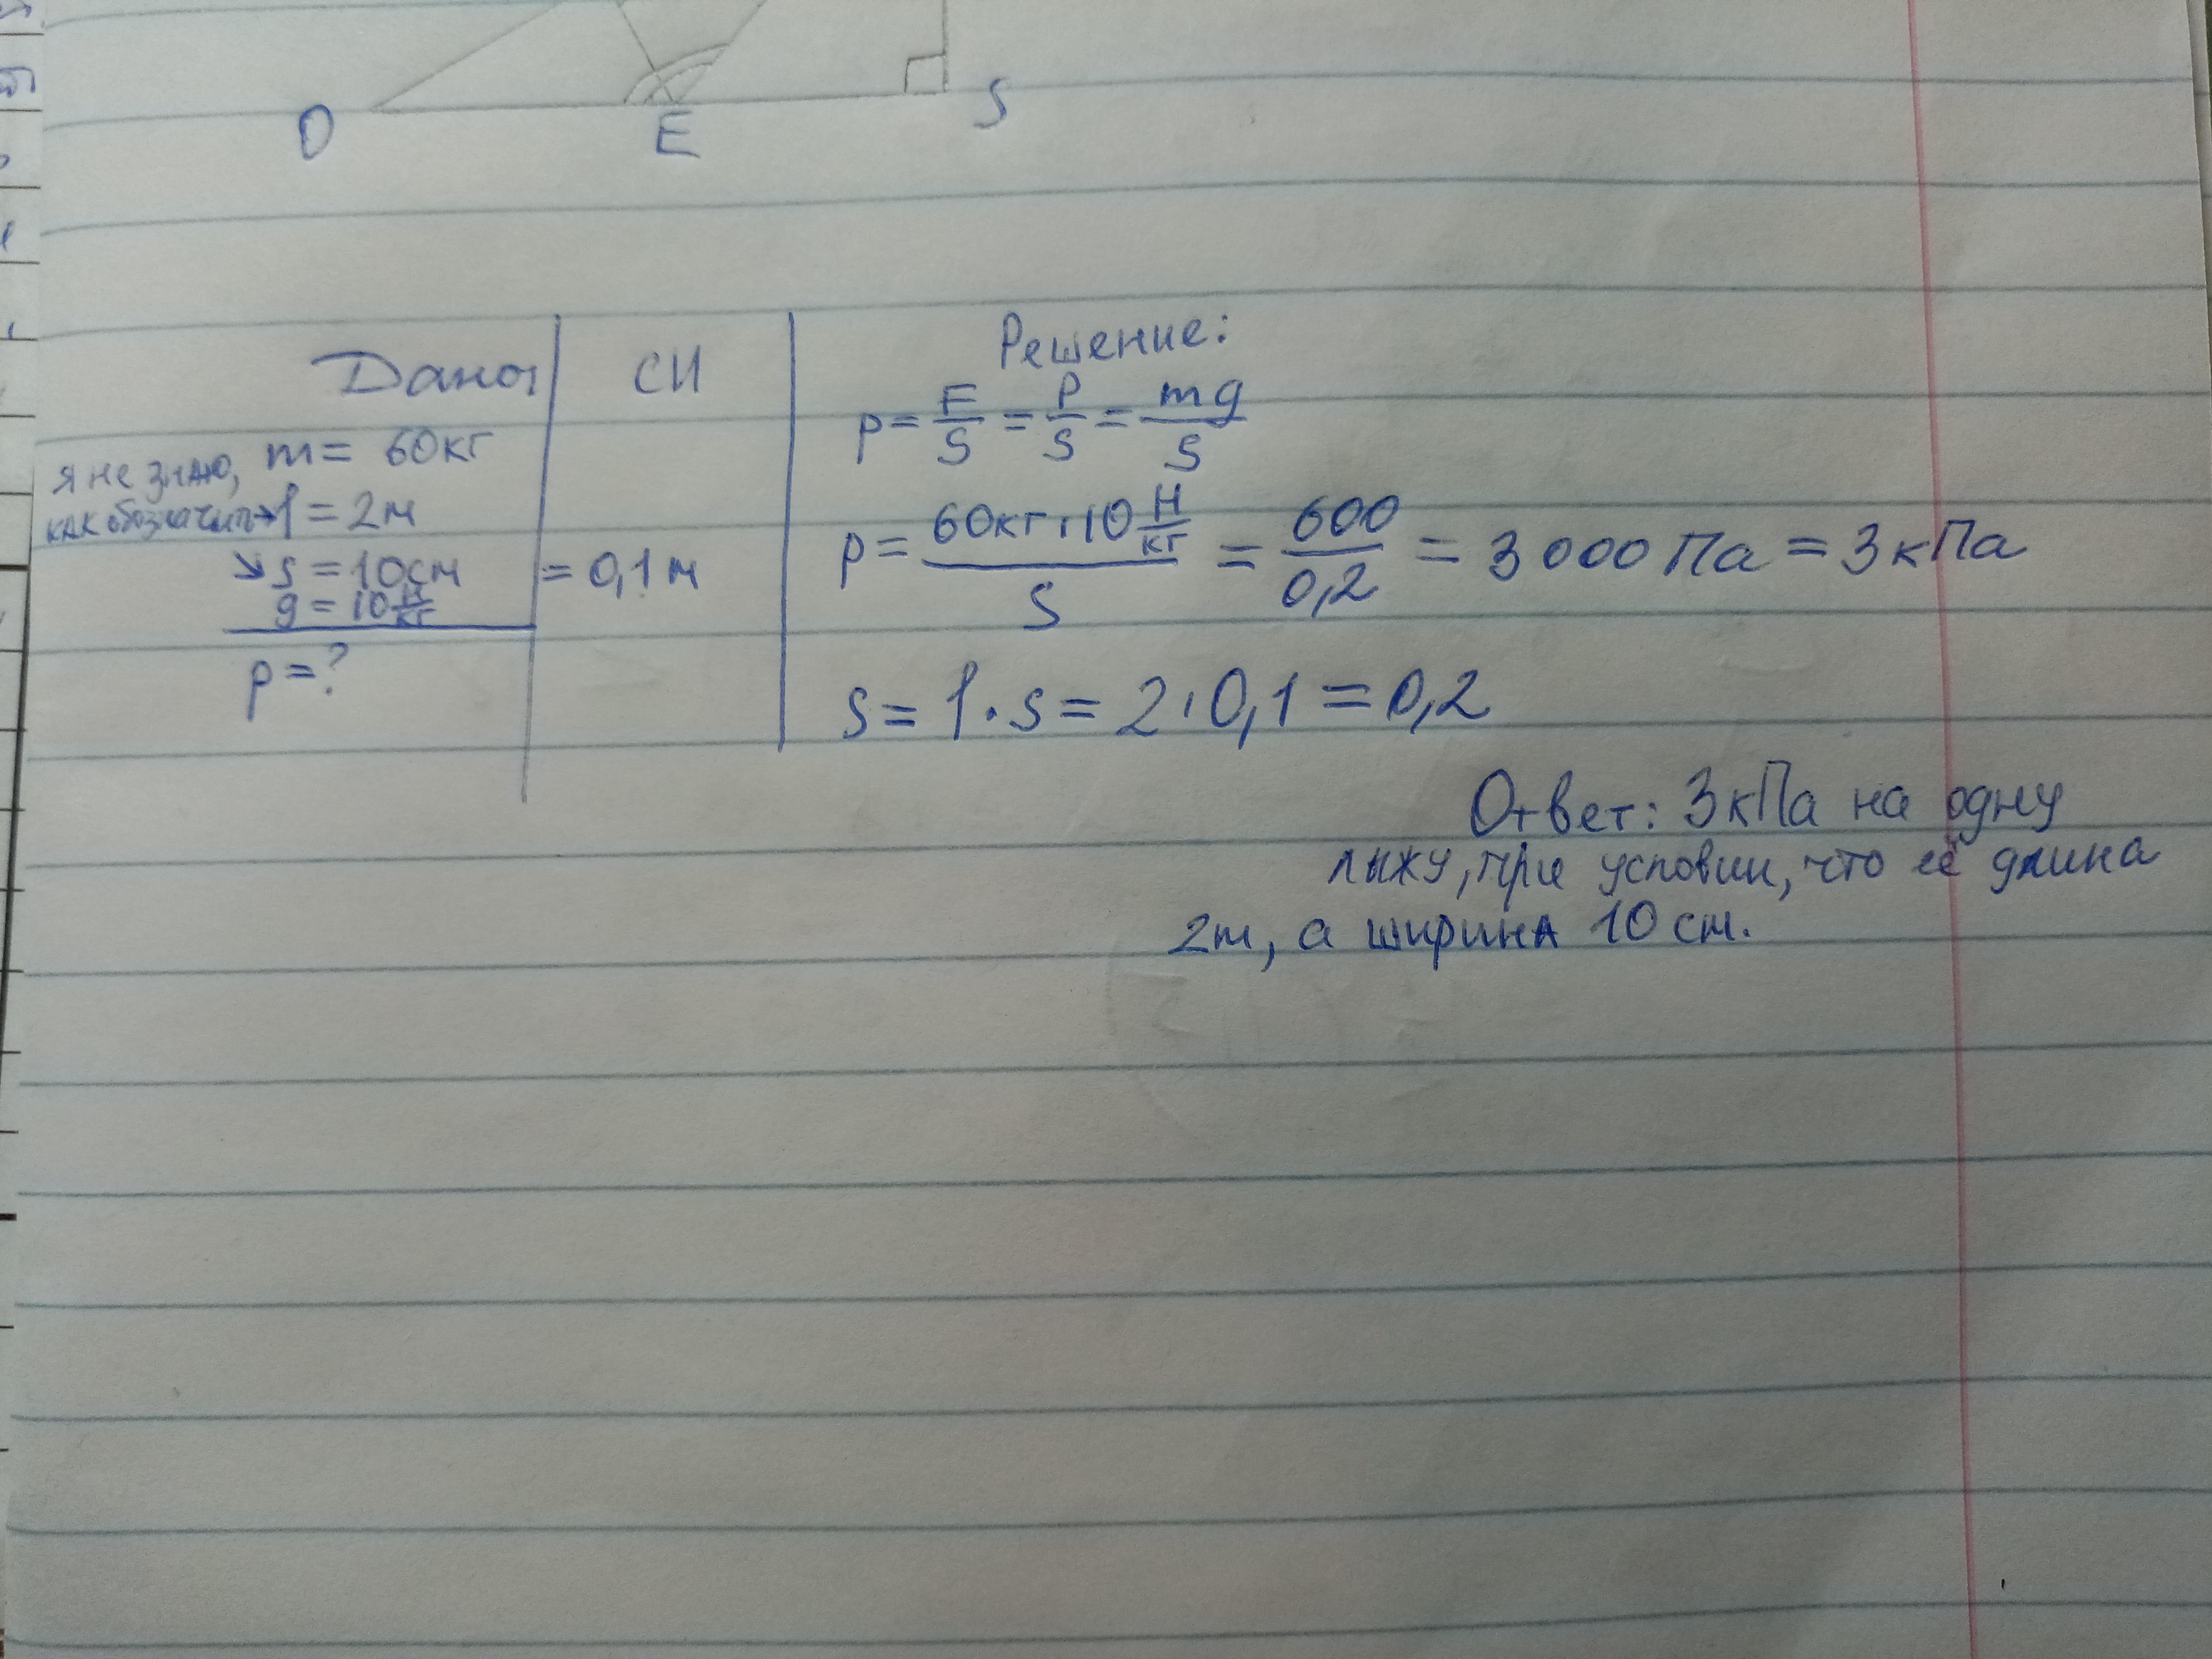 O E S
Дано: СИ Решение:
p = F/S = P/S = mg/S
m = 60кг
я не знаю,
как обозначить→ l = 2м
↘ s = 10см = 0,1м
g = 10 Н/кг
p = ?
p = 60кг·10 Н/кг / S = 600/0,2 = 3000 Па = 3 кПа
s = l · s = 2·0,1 = 0,2
Ответ: 3 кПа на одну
лыжу, при условии, что её длина
2m, а ширина 10 см.